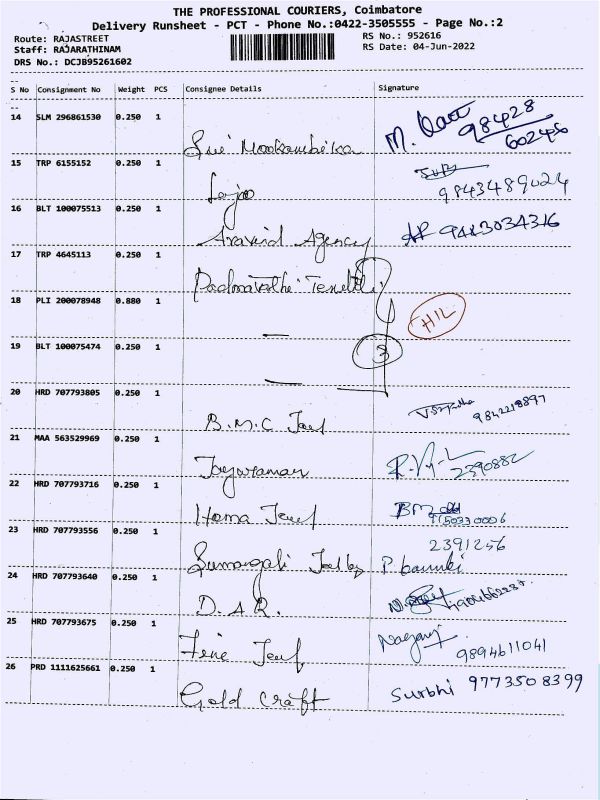 THE PROFESSIONAL COURIERS, Coimbatore
Delivery Runsheet - PCT - Phone No.:0422-3505555 - Page No.:2
Route: RAJASTREET RS No.: 952616
Staff: RAJARATHINAM RS Date: 04-Jun-2022
DRS No.: DCJB95261602
S No Consignment No Weight PCS Consignee Details Signature
14 SLM 296861530 0.250 1
Sri Mookambika M. 98428
602456
15 TRP 6155152 0.250 1
Lajo 9843489024
16 BLT 100075513 0.250 1
Aravind Agency AP 9443034316
17 TRP 4645113 0.250 1
Padmavathi
18 PLI 200078948 0.880 1
— HIL
19 BLT 100075474 0.250 1
3
—
20 HRD 707793805 0.250 1
B.M.C 9842218897
21 MAA 563529969 0.250 1
Jayaraman 2390882
22 HRD 707793716 0.250 1
Hama
23 HRD 707793556 0.250 1
2391256
Sumangali P.
24 HRD 707793640 0.250 1
D.A.R.
25 HRD 707793675 0.250 1
Fine Nagaraj 9894611041
26 PRD 1111625661 0.250 1
Gold Craft Surbhi 9773508399